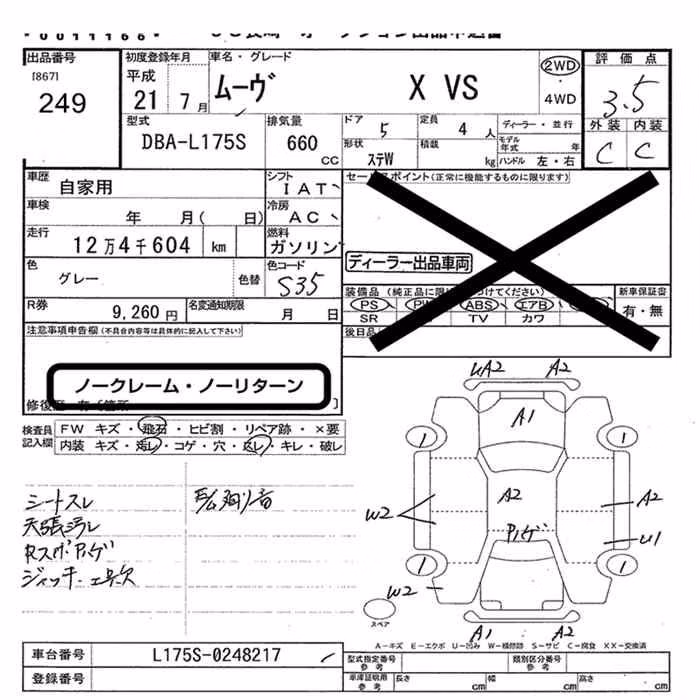 出品番号
[867]
249
初度登録年月
平成
21 7月
車名・グレード
ムーヴ X VS
2WD
・
4WD
評価点
3.5
外装 内装
C C
型式
DBA-L175S
排気量
660
CC
ドア 5
定員 4 人
ディーラー・並行
形状 ステW
積載 kg
モデル年式 年
ハンドル 左・右
車歴 自家用
シフト IAT
セールスポイント(正常に機能するものに限ります)
車検 年 月( 日)
冷房 AC
走行 12万4千604 km
燃料 ガソリン
ディーラー出品車両
色 グレー 色替
色コード S35
装備品(純正品に限り
つけてください)
新車保証書
有・無
PS PW ABS エアB
SR TV カワ
R券 9,260円
名変通知期限 月 日
後日品
注意事項申告欄(不具合内容等は具体的に記入して下さい)
ノークレーム・ノーリターン
修復歴
検査員記入欄
FW キズ・飛石・ヒビ割・リペア跡・×要
内装 キズ・汚レ・コゲ・穴・スレ・キレ・破レ
シートスレ
天張汚レ
ジャッキー工具欠
UA2 A2
A1
1 1
A2
A2
W2
U1
1 1
W2
A1 A2
スペア
A-キズ E-エクボ U-凹み W-補修跡 S-サビ C-腐食 XX-交換済
車台番号 L175S-0248217
登録番号
型式指定番号 参考
類別区分番号 参考
車庫証明用 参考
長さ cm 幅 cm 高さ cm